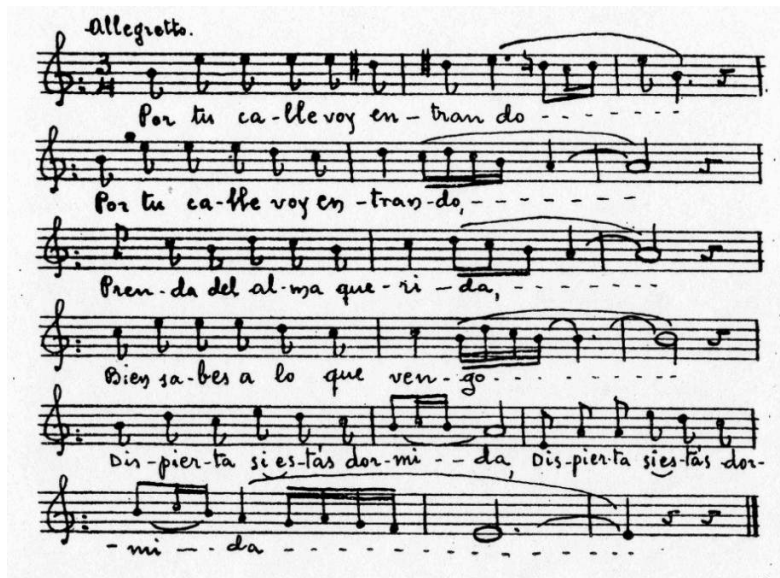 Allegretto.
3
4
Por tu ca-lle voy en-tran do - - - - - - -
Por tu ca-lle voy en-tran-do, - - - - - - -
Pren-da del al-ma que-ri-da, - - - - - - -
Bien sa-bes a lo que ven-go - - - - - - -
Dis-pier-ta si es-tás dor-mi - - da, Dis-pier-ta si es-tás dor-
-mi — da - - - - - - - - - - -